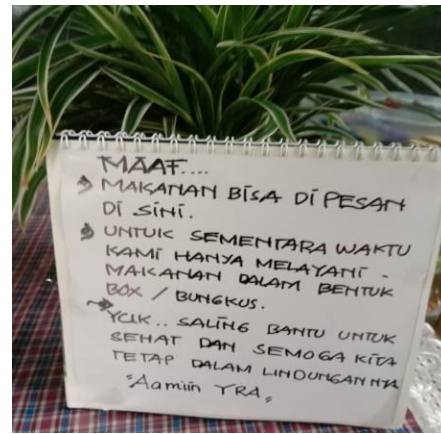 MAAF....
→ MAKANAN BISA DI PESAN
DI SINI.
→ UNTUK SEMENTARA WAKTU
KAMI HANYA MELAYANI -
MAKANAN DALAM BENTUK
BOX / BUNGKUS.
→ YUK.. SALING BANTU UNTUK
SEHAT DAN SEMOGA KITA
TETAP DALAM LINDUNGANNYA
"Aamiin YRA"